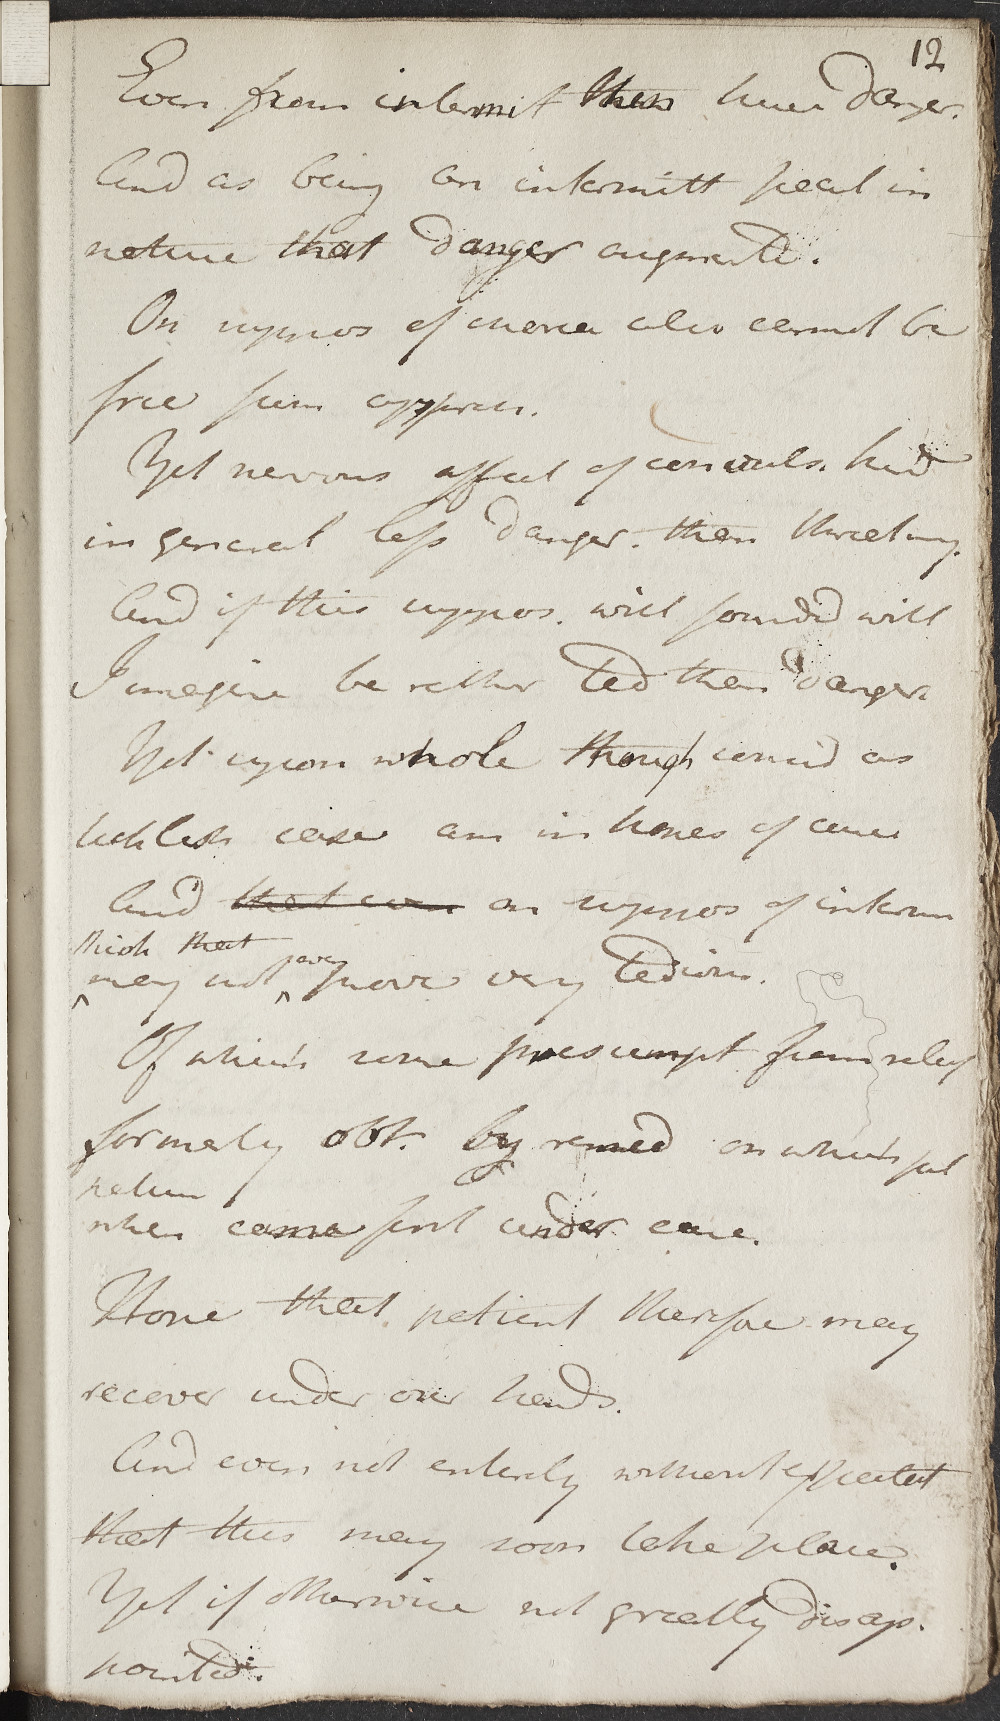 12
Even from intermit then hever danger.
And as being an intermitt pecul in
nature that danger augmentd.
On suppos of menia also cannot be
free from appren.
Yet nervous affect of convuls. kind
in general less danger. then threatnig.
And if this suppos. will foundd will
I imagine be rather Ted then danger.
Yet upon whole though consid as
ticklish case am in hopes of cure
And that even on suppos of interm
think that even
may not prove very tedious.
Of which some presumpt from relief
formerly obt. by remed on which pat
petien
when came first under care.
Hope that patient therefore may
recover under our hands.
And even not entirely without expectat
that this may soon take place.
Yet if otherwise not greatly disap.
pointed.